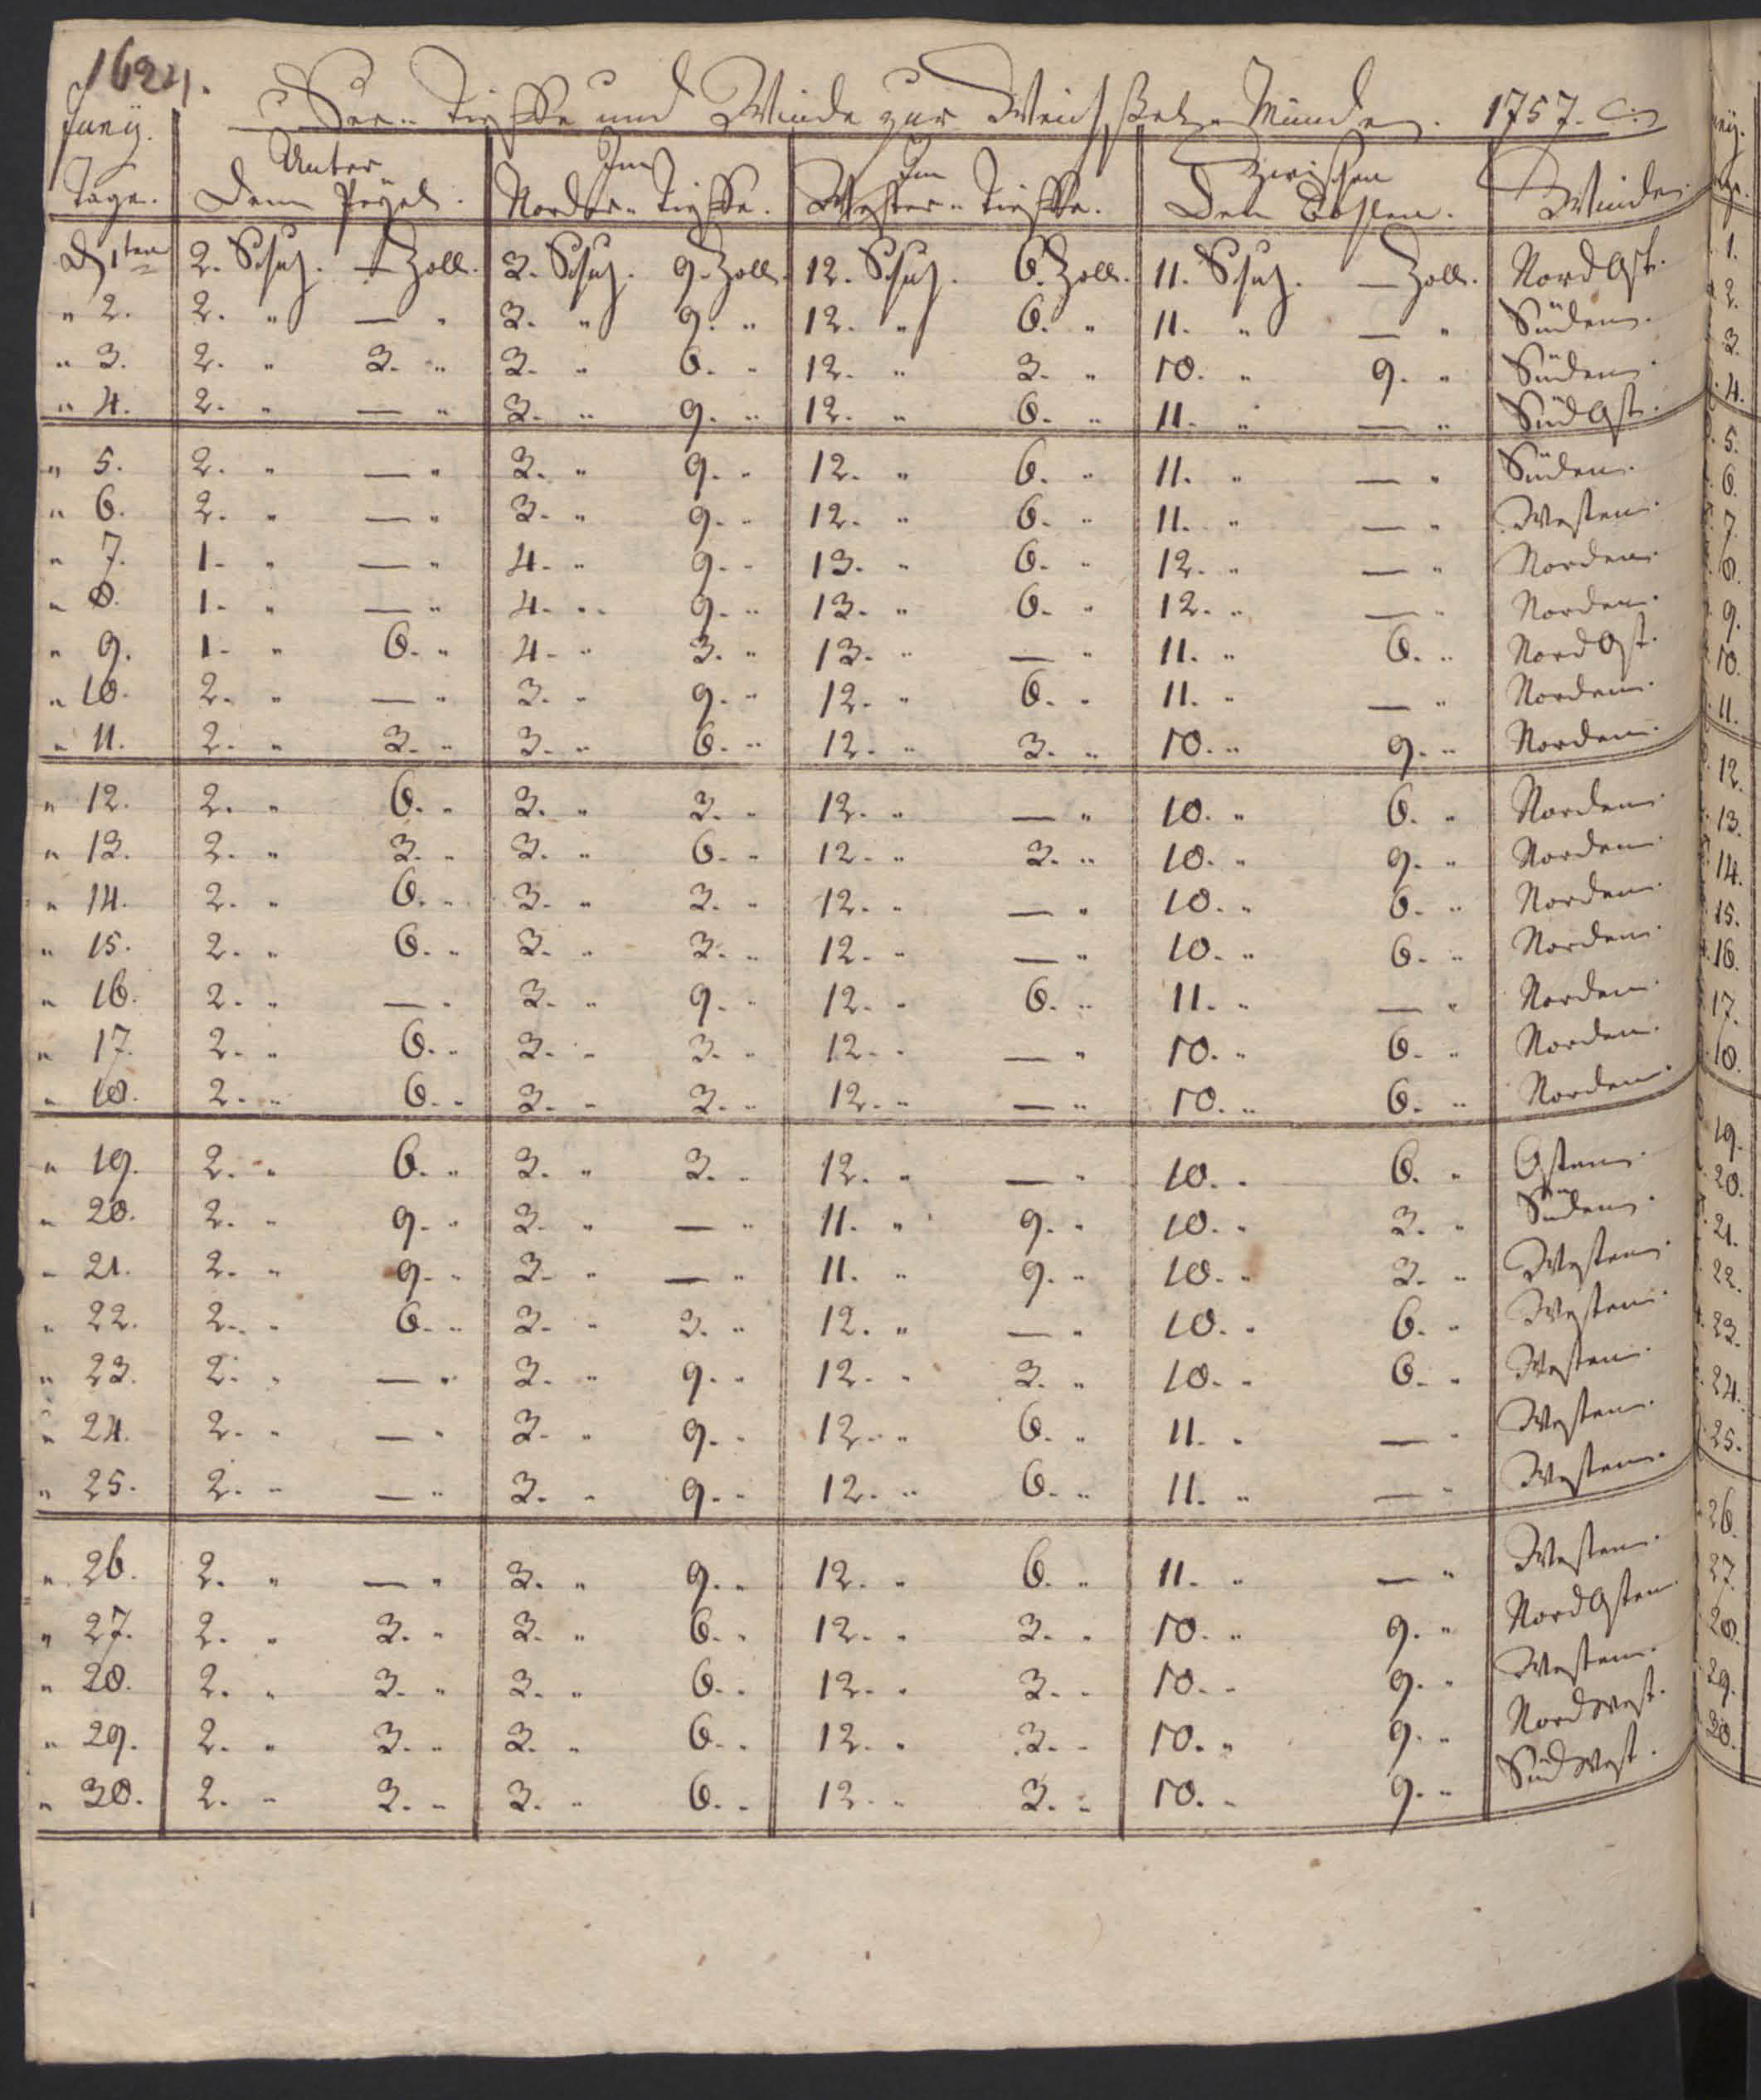 1624.
See- Tieffe und Winde zur Weichselmünde. 1757.
Juny.
Tage. Unter dem Pegel. Im Norder- Tieffe. Im Wester- Tieffe. Zwischen den Bohlen. Winde.
D 1ten 2. Schuh. — Zoll. 3. Schuh. 9. Zoll. 12. Schuh. 6. Zoll. 11. Schuh. — Zoll. NordOst.
" 2. 2. " — " 3. " 9. " 12. " 6. " 11. " — " Süden.
" 3. 2. " 3. " 3. " 6. " 12. " 3. " 10. " 9. " Süden.
" 4. 2. " — " 3. " 9. " 12. " 6. " 11. " — " SüdOst.
" 5. 2. " — " 3. " 9. " 12. " 6. " 11. " — " Süden.
" 6. 2. " — " 3. " 9. " 12. " 6. " 11. " — " Westen.
" 7. 1. " — " 4. " 9. " 13. " 6. " 12. " — " Norden.
" 8. 1. " — " 4. " 9. " 13. " 6. " 12. " — " Norden.
" 9. 1. " 6. " 4. " 3. " 13. " — " 11. " 6. " NordOst.
" 10. 2. " — " 3. " 9. " 12. " 6. " 11. " — " Norden.
" 11. 2. " 3. " 3. " 6. " 12. " 3. " 10. " 9. " Norden.
" 12. 2. " 6. " 3. " 3. " 12. " — " 10. " 6. " Norden.
" 13. 2. " 3. " 3. " 6. " 12. " 3. " 10. " 9. " Norden.
" 14. 2. " 6. " 3. " 3. " 12. " — " 10. " 6. " Norden.
" 15. 2. " 6. " 3. " 3. " 12. " — " 10. " 6. " Norden.
" 16. 2. " — " 3. " 9. " 12. " 6. " 11. " — " Norden.
" 17. 2. " 6. " 3. " 3. " 12. " — " 10. " 6. " Norden.
" 18. 2. " 6. " 3. " 3. " 12. " — " 10. " 6. " Norden.
" 19. 2. " 6. " 3. " 3. " 12. " — " 10. " 6. " Osten.
" 20. 2. " 9. " 3. " — " 11. " 9. " 10. " 3. " Süden.
" 21. 2. " 9. " 3. " — " 11. " 9. " 10. " 3. " Westen.
" 22. 2. " 6. " 3. " 3. " 12. " — " 10. " 6. " Westen.
" 23. 2. " — " 3. " 9. " 12. " 3. " 10. " 6. " Westen.
" 24. 2. " — " 3. " 9. " 12. " 6. " 11. " — " Westen.
" 25. 2. " — " 3. " 9. " 12. " 6. " 11. " — " Westen.
" 26. 2. " — " 3. " 9. " 12. " 6. " 11. " — " Westen.
" 27. 2. " 3. " 3. " 6. " 12. " 3. " 10. " 9. " NordOsten
" 28. 2. " 3. " 3. " 6. " 12. " 3. " 10. " 9. " Westen.
" 29. 2. " 3. " 3. " 6. " 12. " 3. " 10. " 9. " NordWest.
" 30. 2. " 3. " 3. " 6. " 12. " 3. " 10. " 9. " SüdWest.
1.
2.
3.
4.
5.
6.
7.
8.
9.
10.
11.
12.
13.
14.
15.
16.
17.
18.
19.
20.
21.
22.
23.
24.
25.
26.
27.
28.
29.
30.